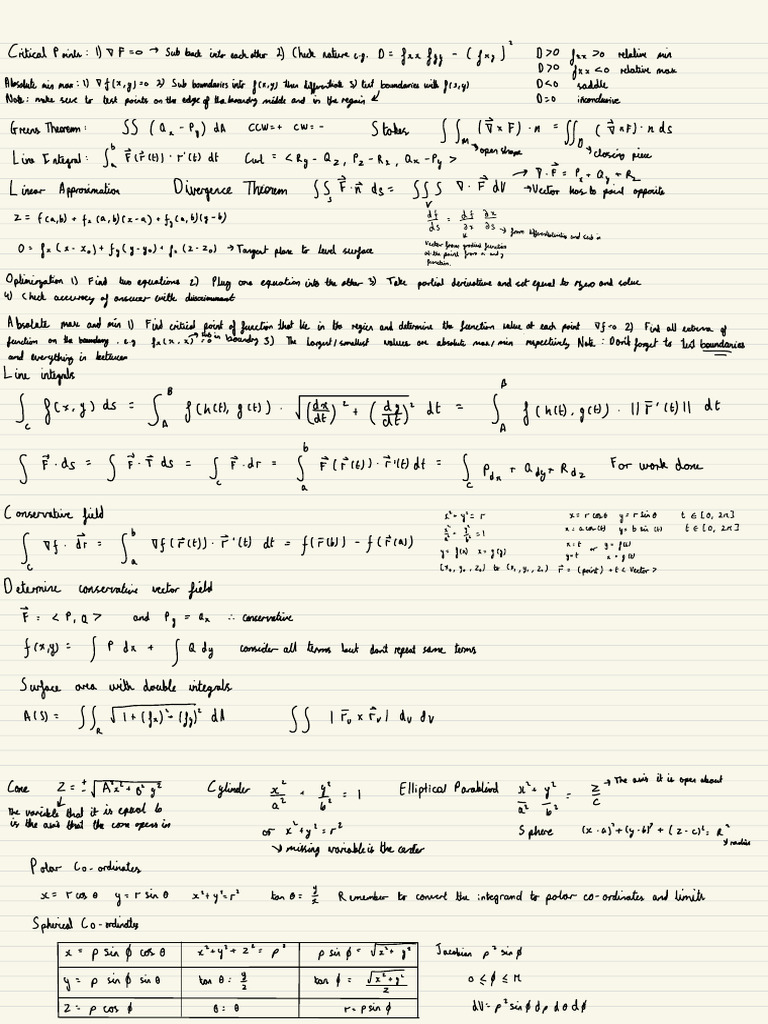 Critical Points: 1) ∇F=0 → Sub back into each other 2) Check nature e.g. D = fxx fyy - (fxy)² D>0 fxx>0 relative min
D>0 fxx<0 relative max
D<0 saddle
D=0 inconclusive
Absolute min max: 1) ∇f(x,y)=0 2) Sub boundaries into f(x,y) then differentiate 3) test boundaries with f(x,y)
Note: make sure to test points on the edge of the boundary middle and in the region
Greens Theorem: ∬ (Qx - Py) dA CCW=+ CW=- Stokes ∬_M (∇⃗ x F) · n = ∬_D (∇⃗ x F) · n ds
→ open shape → closing piece
Line Integral: ∫_a^b F⃗(r⃗(t)) · r'(t) dt Curl = < Ry - Qz, Pz - Rx, Qx - Py >
→ ∇·F⃗ = Px + Qy + Rz
Linear Approximation Divergence Theorem ∬_S F⃗·n⃗ ds = ∭_V ∇·F⃗ dV → Vector has to point opposite
z = f(a,b) + fx(a,b)(x-a) + fy(a,b)(y-b)
df/ds = df/dx ∂x/∂s
0 = fx (x-x₀) + fy(y-y₀) + fz (z-z₀) → Tangent plane to level surface
Vector from partial function
at the point from x and y
function.
Optimization 1) Find two equations 2) Plug one equation into the other 3) Take partial derivative and set equal to zero and solve
4) Check accuracy of answer with discriminant
Absolute max and min 1) Find critical point of function that lie in the region and determine the function value at each point ∇f=0 2) Find all extrema of
function on the boundary. e.g. fx(x,x)=0 3) The largest/smallest values are absolute max/min respectively Note: Dont forget to test boundaries
and everything in between
Line integrals
∫_C f(x,y) ds = ∫_A^B f(h(t), g(t)) · √((dx/dt)² + (dy/dt)²) dt = ∫_A^B f(h(t), g(t) · ||r⃗'(t)|| dt
∫ F⃗·ds = ∫ F⃗·T⃗ ds = ∫_C F⃗·dr = ∫_a^b F⃗(r⃗(t)) · r⃗'(t) dt = ∫_C Pdx + Qdy + Rdz For work done
Conservative field
∫_C ∇f · dr⃗ = ∫_a^b ∇f(r⃗(t)) · r⃗'(t) dt = f(r⃗(b)) - f(r⃗(a))
x²+y²=r x = r cosθ y = r sinθ t ∈ [0, 2π]
x²/a² + y²/b² = 1 x = a cos(t) y = b sin(t) t ∈ [0, 2π]
y = f(x) x = g(y) x=t y=f(t) or y=t x=g(t)
(x₀, y₀, z₀) to (x₁, y₁, z₁) r⃗ = (point) + t < Vector >
Determine conservative vector field
F⃗ = < P, Q > and Py = Qx ∴ conservative
f(x,y) = ∫ P dx + ∫ Q dy consider all terms but dont repeat same terms
Surface area with double integrals
A(S) = ∬_R √(1 + (fx)² + (fy)²) dA ∬ | r⃗u x r⃗v | du dv
Cone z = ±√(A²x² + B²y²) Cylinder x²/a² + y²/b² = 1 Elliptical Paraboloid x²/a² + y²/b² = z/c → The axis it is open about
The variable that it is equal to
is the axis that the cone opens in
or x²+y²=r² Sphere (x-a)²+(y-b)²+(z-c)²=R²
↘ missing variable is the center ↘ radius
Polar Co-ordinates
x = r cos θ y = r sin θ x²+y²=r² tan θ = y/x Remember to convert the integrand to polar co-ordinates and limits
Spherical Co-ordinates
x = ρ sin ϕ cos θ x²+y²+z² = ρ² ρ sin ϕ = √(x²+y²) Jacobian ρ² sin ϕ
y = ρ sin ϕ sin θ tan θ = y/x tan ϕ = √(x²+y²)/z 0 ≤ ϕ ≤ π
z = ρ cos ϕ θ = θ r = ρ sin ϕ dV = ρ² sin ϕ dρ dθ dϕ